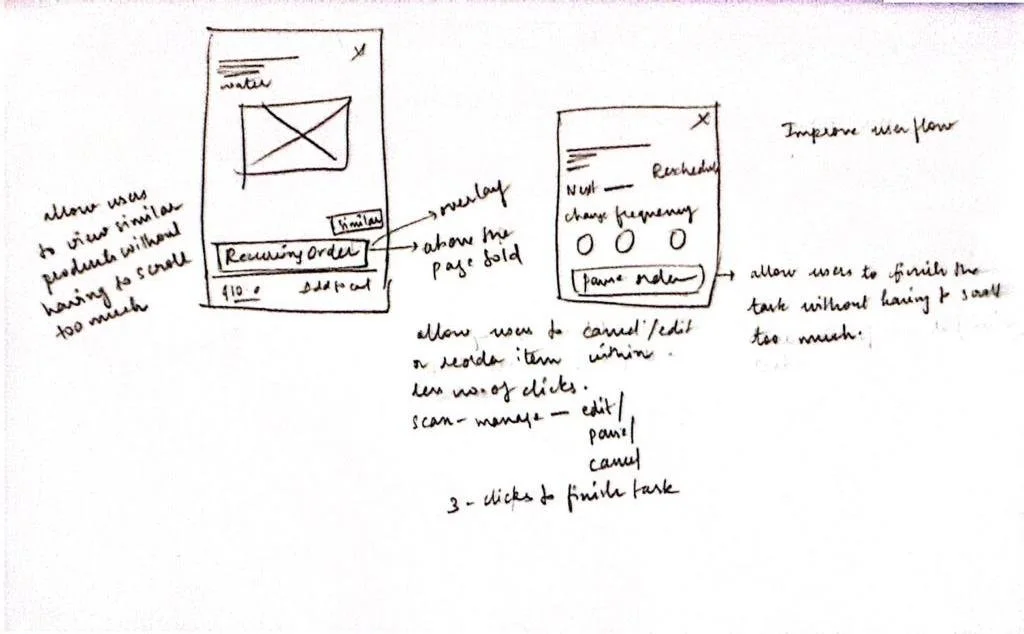 water
similar
Recurring Order
$10.0
Add to cart
allow users
to view similar
products without
having to scroll
too much
overlay
above the
page fold
Next
Reschedule
change frequency
pause order
Improve userflow
allow users to finish the
task without having to scroll
too much.
allow users to cancel/edit
or reorder item within
less no. of clicks.
scan - manage - edit/
pause/
cancel
3 - clicks to finish task